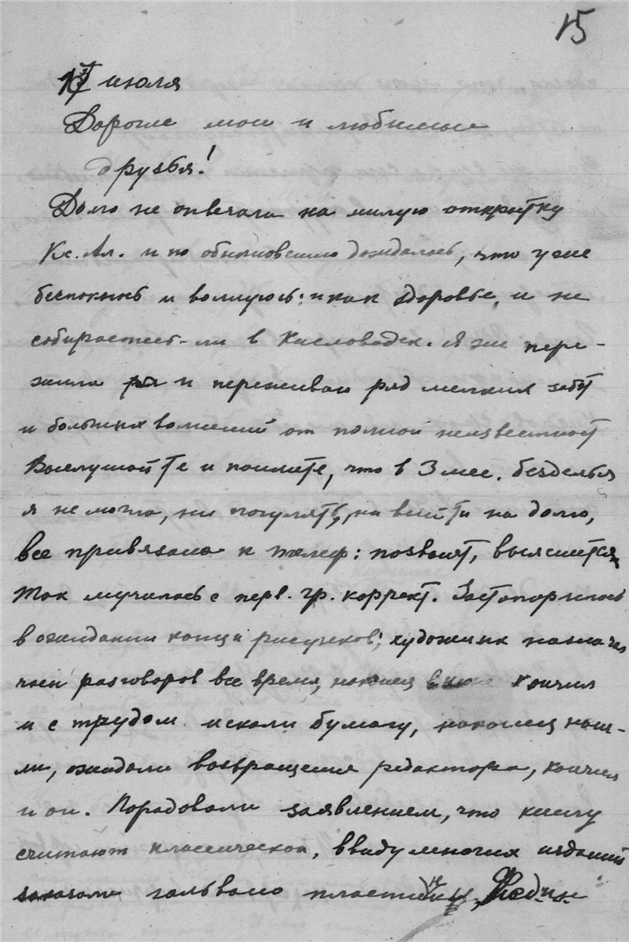 15
июля
Дорогие мои и любимые
друзья!
Долго не отвечала на милую открытку
Кс. Ал. и по обыкновению дождалась, что уже
беспокоюсь и волнуюсь: и как здоровье, и не
собираетесь-ли в Кисловодск. Я же пере-
жила и переживаю ряд мелких забот
и больших волнений от полной неизвестност
Выслушайте и поймите, что в 3 мес. безделья
я не могла, ни погулять, ни выйти на долго,
все привязана к телеф: позвонят, выяснится
Так мучилась с перв. гр. коррект. Застопорилось
в ожидании конца рисунков; художник
разговоров все время, наконец кончил
и с трудом искали бумагу, наконец наш-
ли, ожидали возвращения редактора, кончил
и он. Порадовали заявлением, что книгу
считают классической, ввиду многих изданий
заказали гальвано пластику,